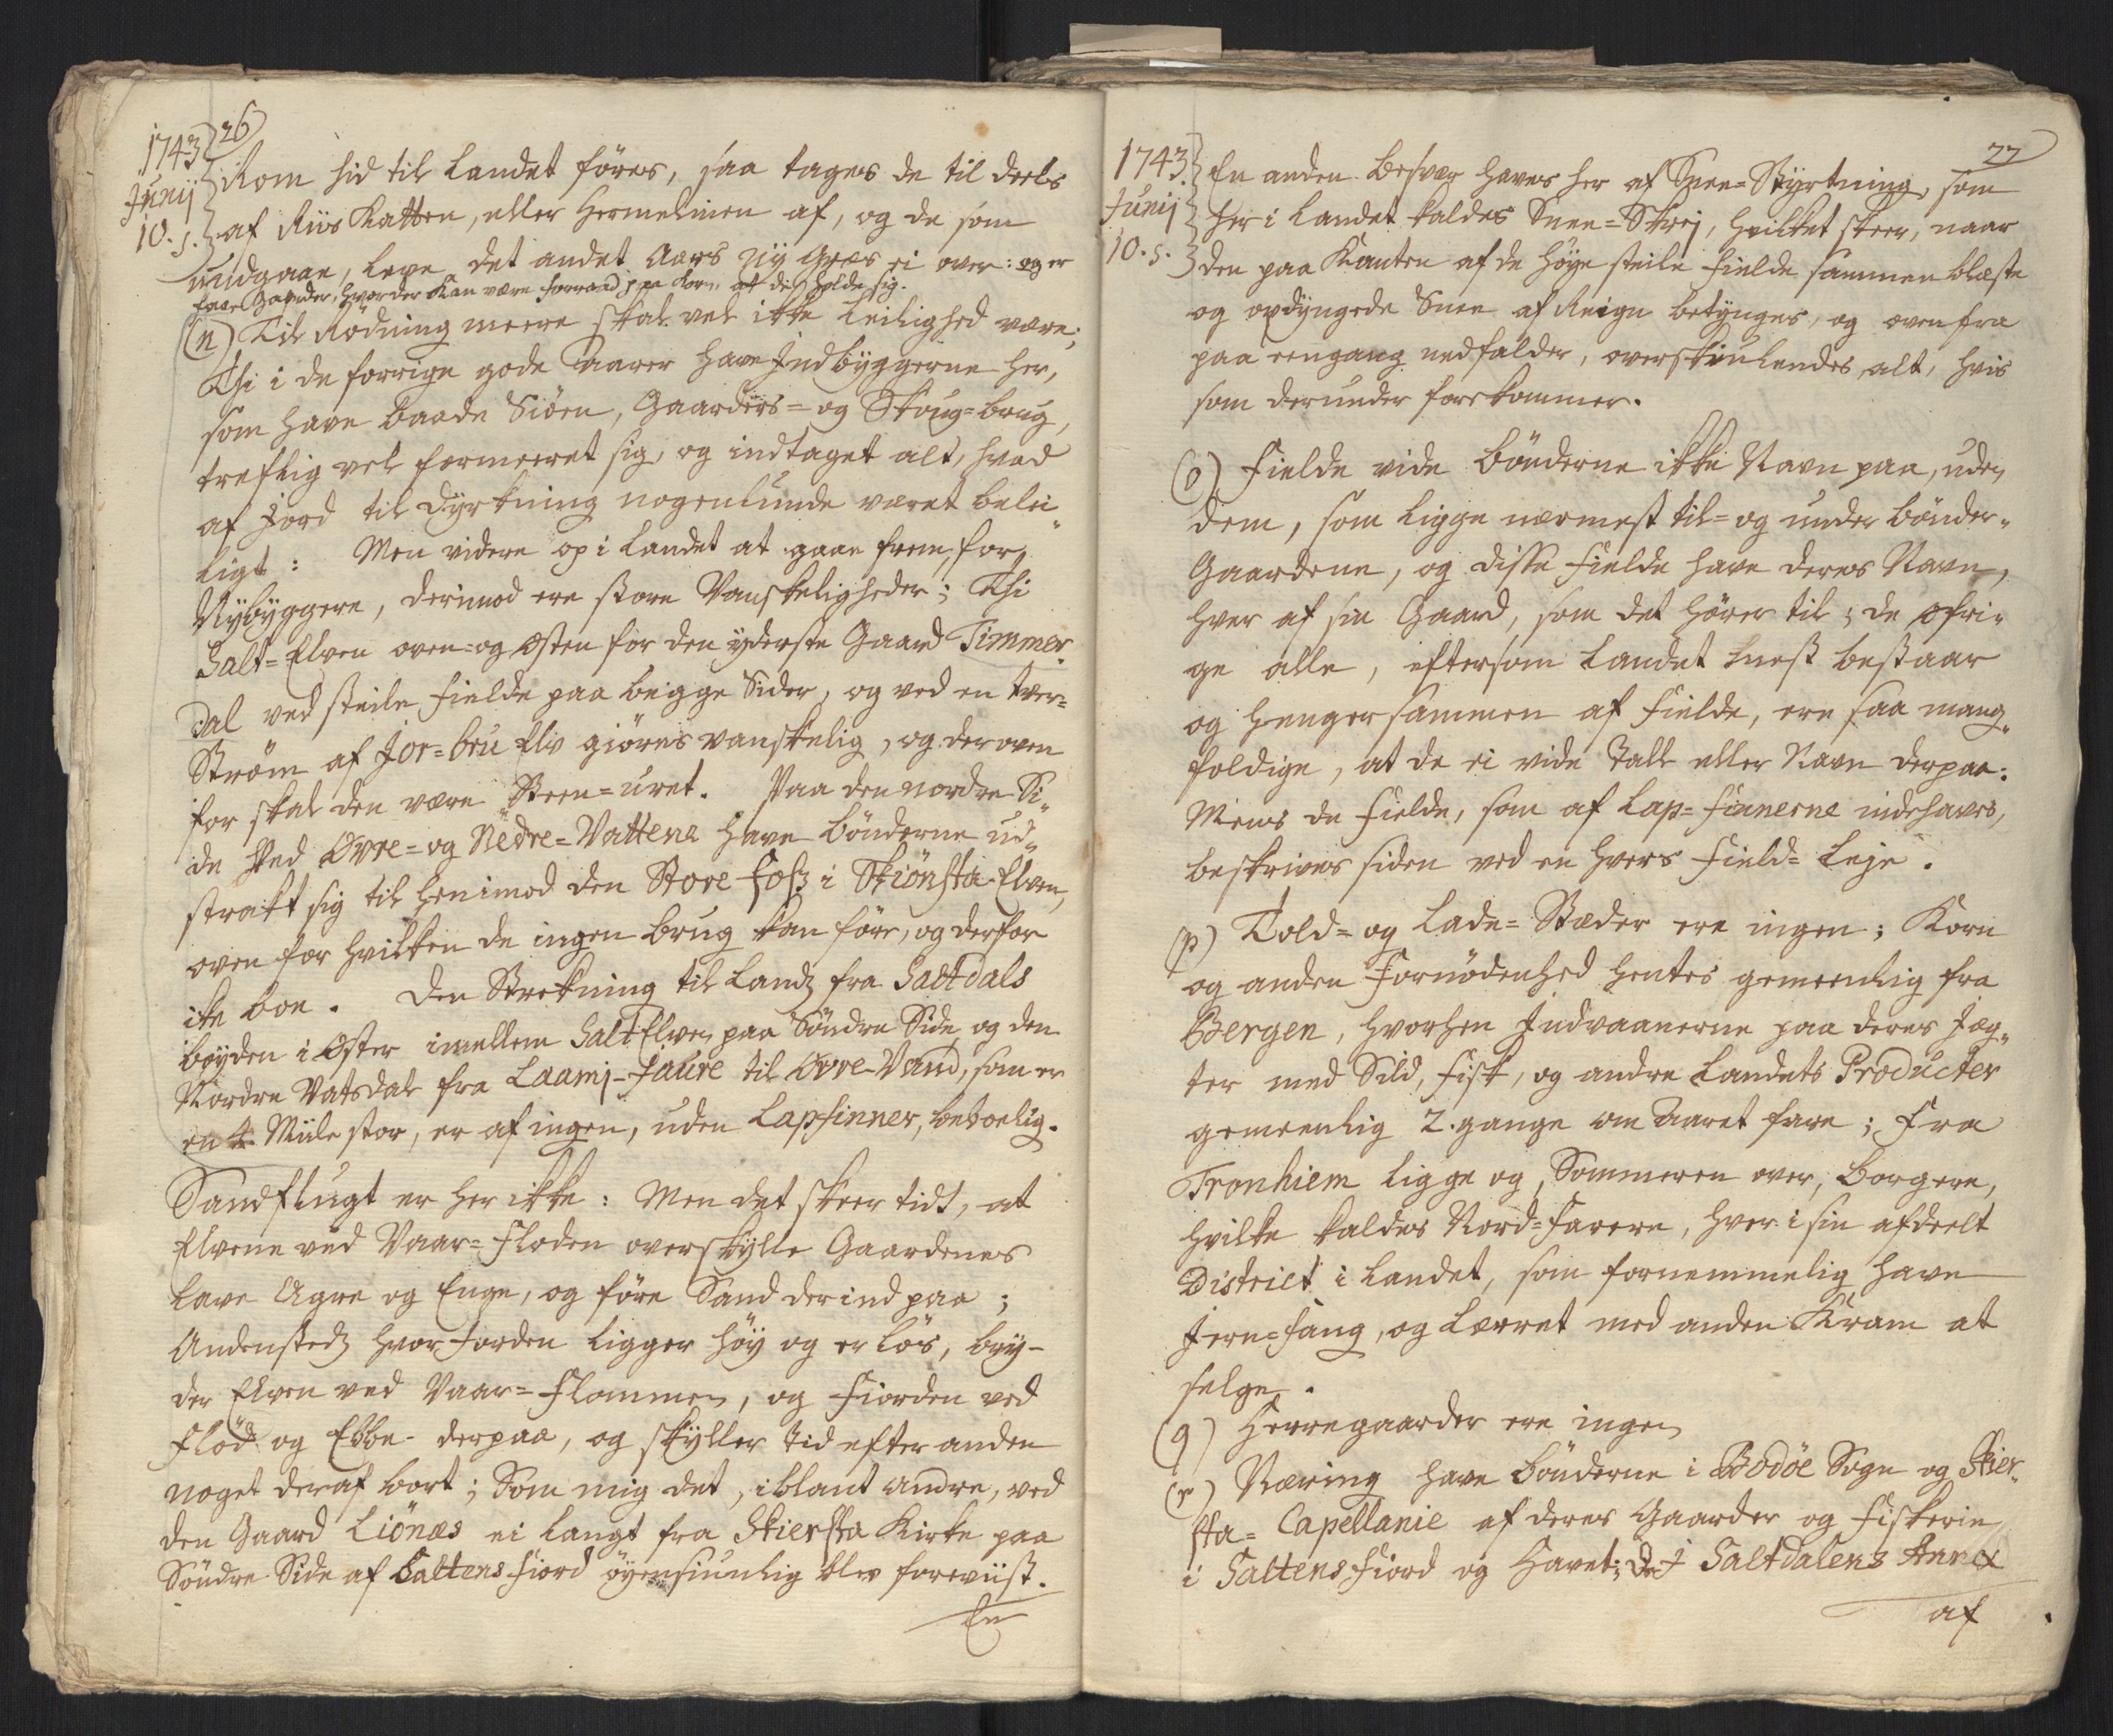 26
1743
Junij
10. s.
kom hid til Landet føres, saa tages de til deels
af Riis Katten, eller Hermelinen af, og de som
undgaae, leve det andet Aars ny Græs ei over: og er
faae Gaarder, hvor der kan være forraad paa Korn at de holde sig.
(n) Til Rødning meere skal vel ikke Leilighed være;
Thi i de forrige gode Aarer have Indbyggerne her,
som have baade Siöen, Gaarders= og Skoug=brug,
treflig vel formeeret sig, og indtaget alt, hvad
af Jord til Dyrkning nogenlunde været belei„
ligt: Men videre op i Landet at gaae frem, for
Nybyggere, derimod ere store Vanskeligheder; Thi
Salt=Elven oven= og Østen for den yderste Gaard Timmer„
dal ved steile Fielde paa beigge Sider, og ved en tver=
Ström af Jor=bru Elv giöres vanskelig, og der oven
for skal den være Steen=uret. Paa den nordre Si„
de ved Øvre= og Nedre=Vattene have Bönderne ud„
strakt sig til henimod den Store Foss i Skiönsta-Elven,
oven for hvilken de ingen brug kan före, og derfor
ikke boe. Den Strekning til Landz fra Saltdals
böyden i Øster imellem Salt Elven paa Söndre Side og den
Nordre Vatsdal fra Laamj-Jaure til Øvre-Vand, som er
en 4 Miile stor, er af ingen, uden Lapfinner, beboelig.
Sandflugt er her ikke: Men det skeer tidt, at
Elvene ved Vaar=Floden overskylle Gaardenes
lave Agre og Enge, og före Sand der ind paa;
Andenstedz hvor Jorden ligger höy og er lös, bry-
der Elven ved Vaar=Flommen, og Fiorden ved
Flöd og Ebbe derpaa, og skyller tid efter anden
noget deraf bort; Som mig det, iblant andre, ved
den Gaard Liönæs ei langt fra Skiersta Kirke paa
Söndre Side af Saltens Fiord öyensiunlig blev foreviist.
En
27
1743.
Junij
10. s.
En anden Besvær haves her af Snee=Styrtning, som
her i Landet kaldes Snee=Skrej, hvilket skeer, naar
den paa Kanten af de höye steile Fielde sammenblæste
og opdyngede Snee af Reign betynges, og ovenfra
paa eengang nedfalder, overskiulendes alt, hvis
som derunder forekommer.
(o) Fielde vide Bönderne ikke Navn paa, uden
dem, som ligge nærmest til= og under Bönder„
Gaardene, og disse Fielde have deres Navn,
hver af sin Gaard, som det hörer til; de öfri„
ge alle, eftersom Landet huest bestaar
og henger sammen af Fielde, ere saa mang„
foldige, at de ei vide Tall eller Navn derpaa:
Mens de Fielde, som af Lap=Finnerne indehaves,
beskrives siden ved en hvers Field=Leje.
(p) Told= og Lade=Stæder ere ingen; Korn
og anden Fornödenhed hentes gemeenlig fra
Bergen, hvorhen Indvaanerne paa deres Jæg„
ter med Sild, Fisk, og andre Landets Producter
gemeenlig 2. gange om Aaret fare; Fra
Tronhiem ligge og, Sommeren over, Borgere,
hvilke kaldes Nord=Farere, hver i sin afdeelt
District i Landet, som fornemmelig have
Jern=fang, og Lærret med anden Kram at
selge.
(q) Herregaarder ere ingen
(r) Næring have Bönderne i Bodöe Sogn og Skier„
sta= Capellanie af deres Gaarder og Fiskerie
i Saltens Fiord og Havet; De i Saltdalens Annex
af